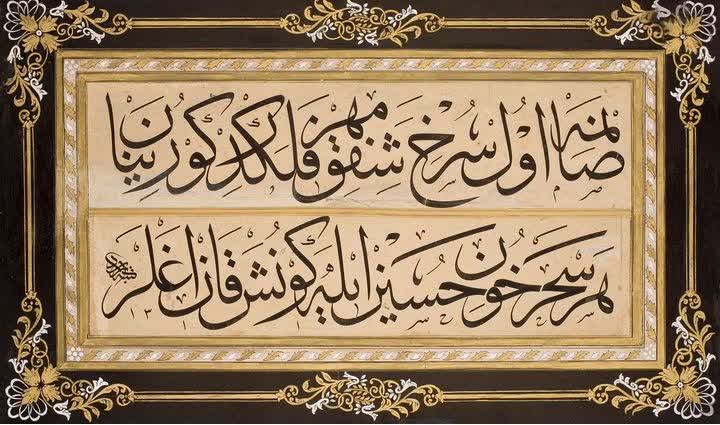 صانمه اول سرخ شفق مهر فلكد كورينان
هر سحر خون حسين ايله كونش قان اغلر